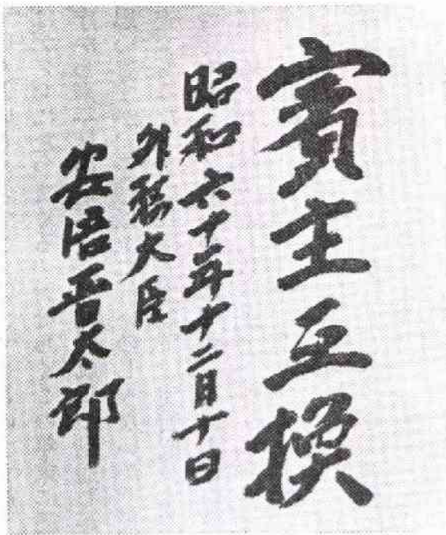 賓主互換
昭和六十年十二月十日
外務大臣
安倍晋太郎